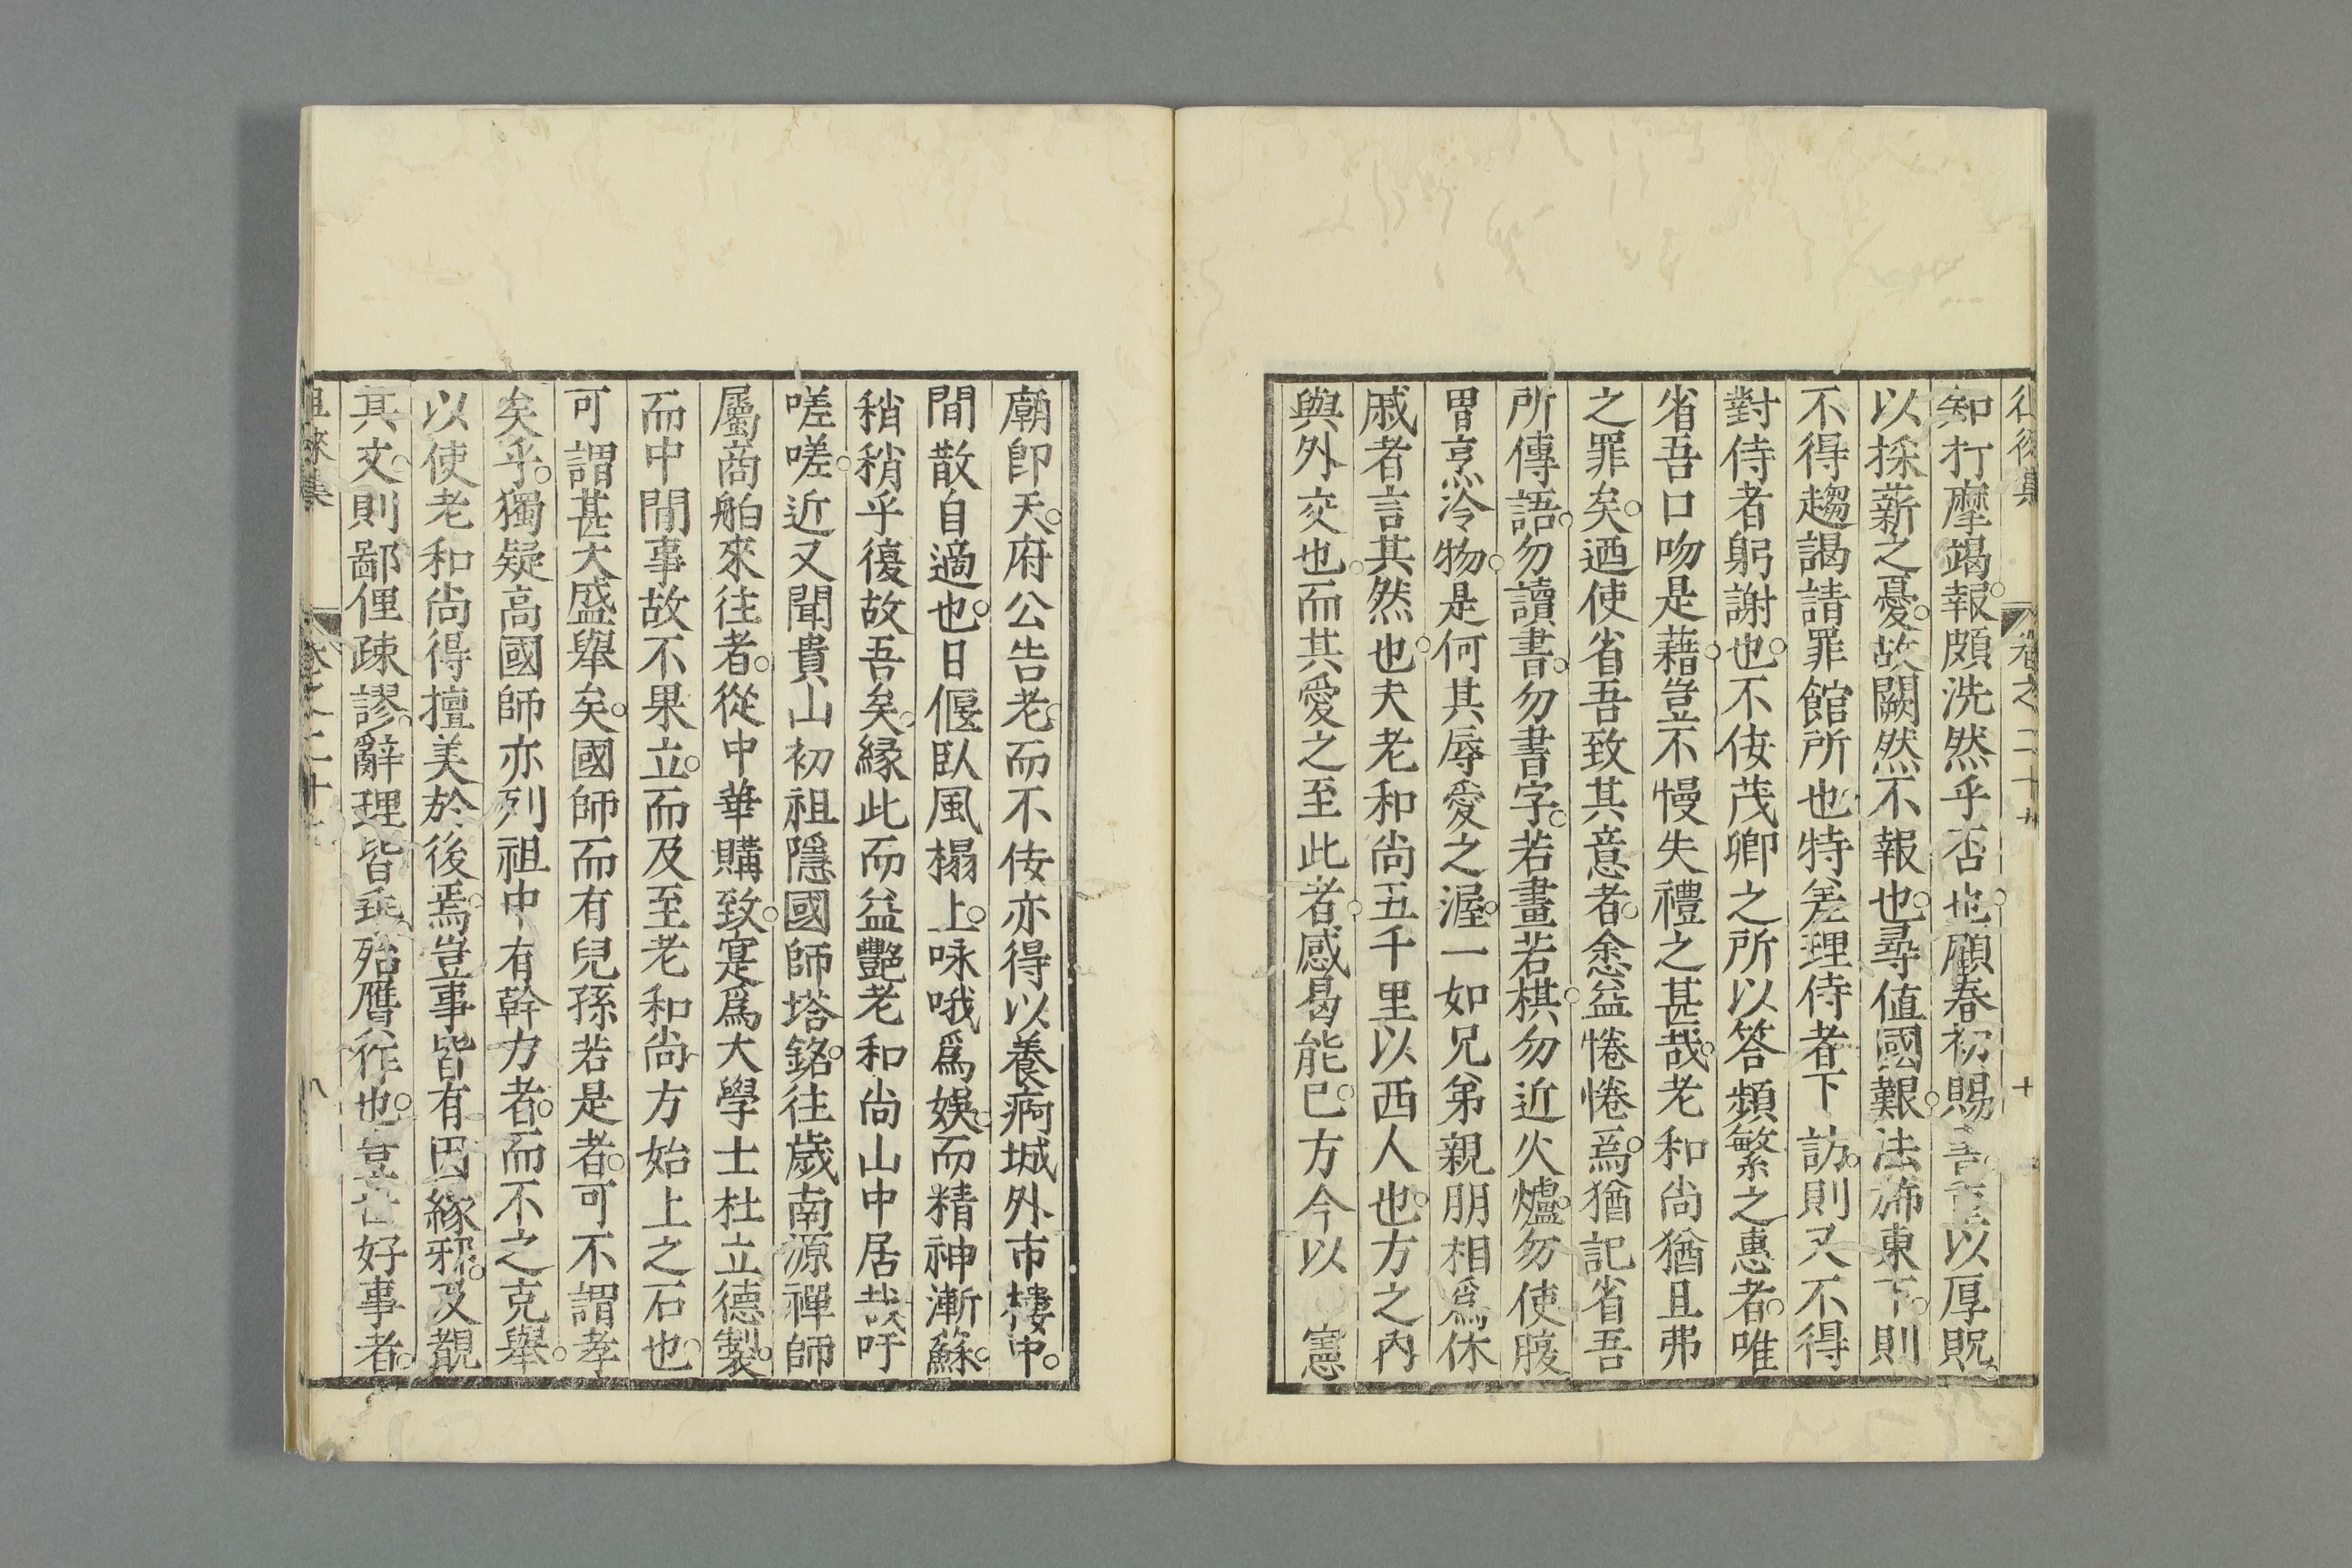 知打摩竭。報頗洗然乎否也。顧春初賜書重以厚貺。
以採薪之憂。故闕然不報也。尋值國艱。法斾東下。則
不得趨謁請罪館所也。特差理侍者下訪。則又不得
對侍者躬謝也。不佞茂卿之所以答頻繁之惠者。唯
省吾口吻是藉。豈不慢失禮之甚哉。老和尚猶且弗
之罪矣。迺使省吾致其意者。悆益惓惓焉。猶記省吾
所傳語。勿讀書。勿書字。若畫若棋。勿近火爐。勿使腹
胃烹冷物。是何其辱愛之渥。一如兄弟親朋相爲休
戚者言其然也。夫老和尚五千里以西人也。方之內
與外交也。而其愛之至此者。感曷能已。方今以 憲
廟卽天。府公告老。而不佞亦得以養痾城外市樓中。
間散自適也。日偃臥風榻上。咏哦爲娛。而精神漸蘇。
稍稍乎復故吾矣。緣此而益艷老和尚山中居哉。吁
嗟嗟。近又聞貴山初祖隱國師塔銘。往歲南源禪師
屬商舶來往者。從中華購致。寔爲大學士杜立德製。
而中間事故不果立。而及至老和尚方始上之石也。
可謂甚大盛舉矣。國師而有兒孫若是者。可不謂孝
矣乎。獨疑高國師亦列祖中有幹力者。而不之克舉。
以使老和尚得擅美於後焉。豈事皆有因緣邪。及覩
其文。則鄙俚疎謬。辭理皆乖。殆贋作也。豈世好事者。
徂徠集 卷之二十 八